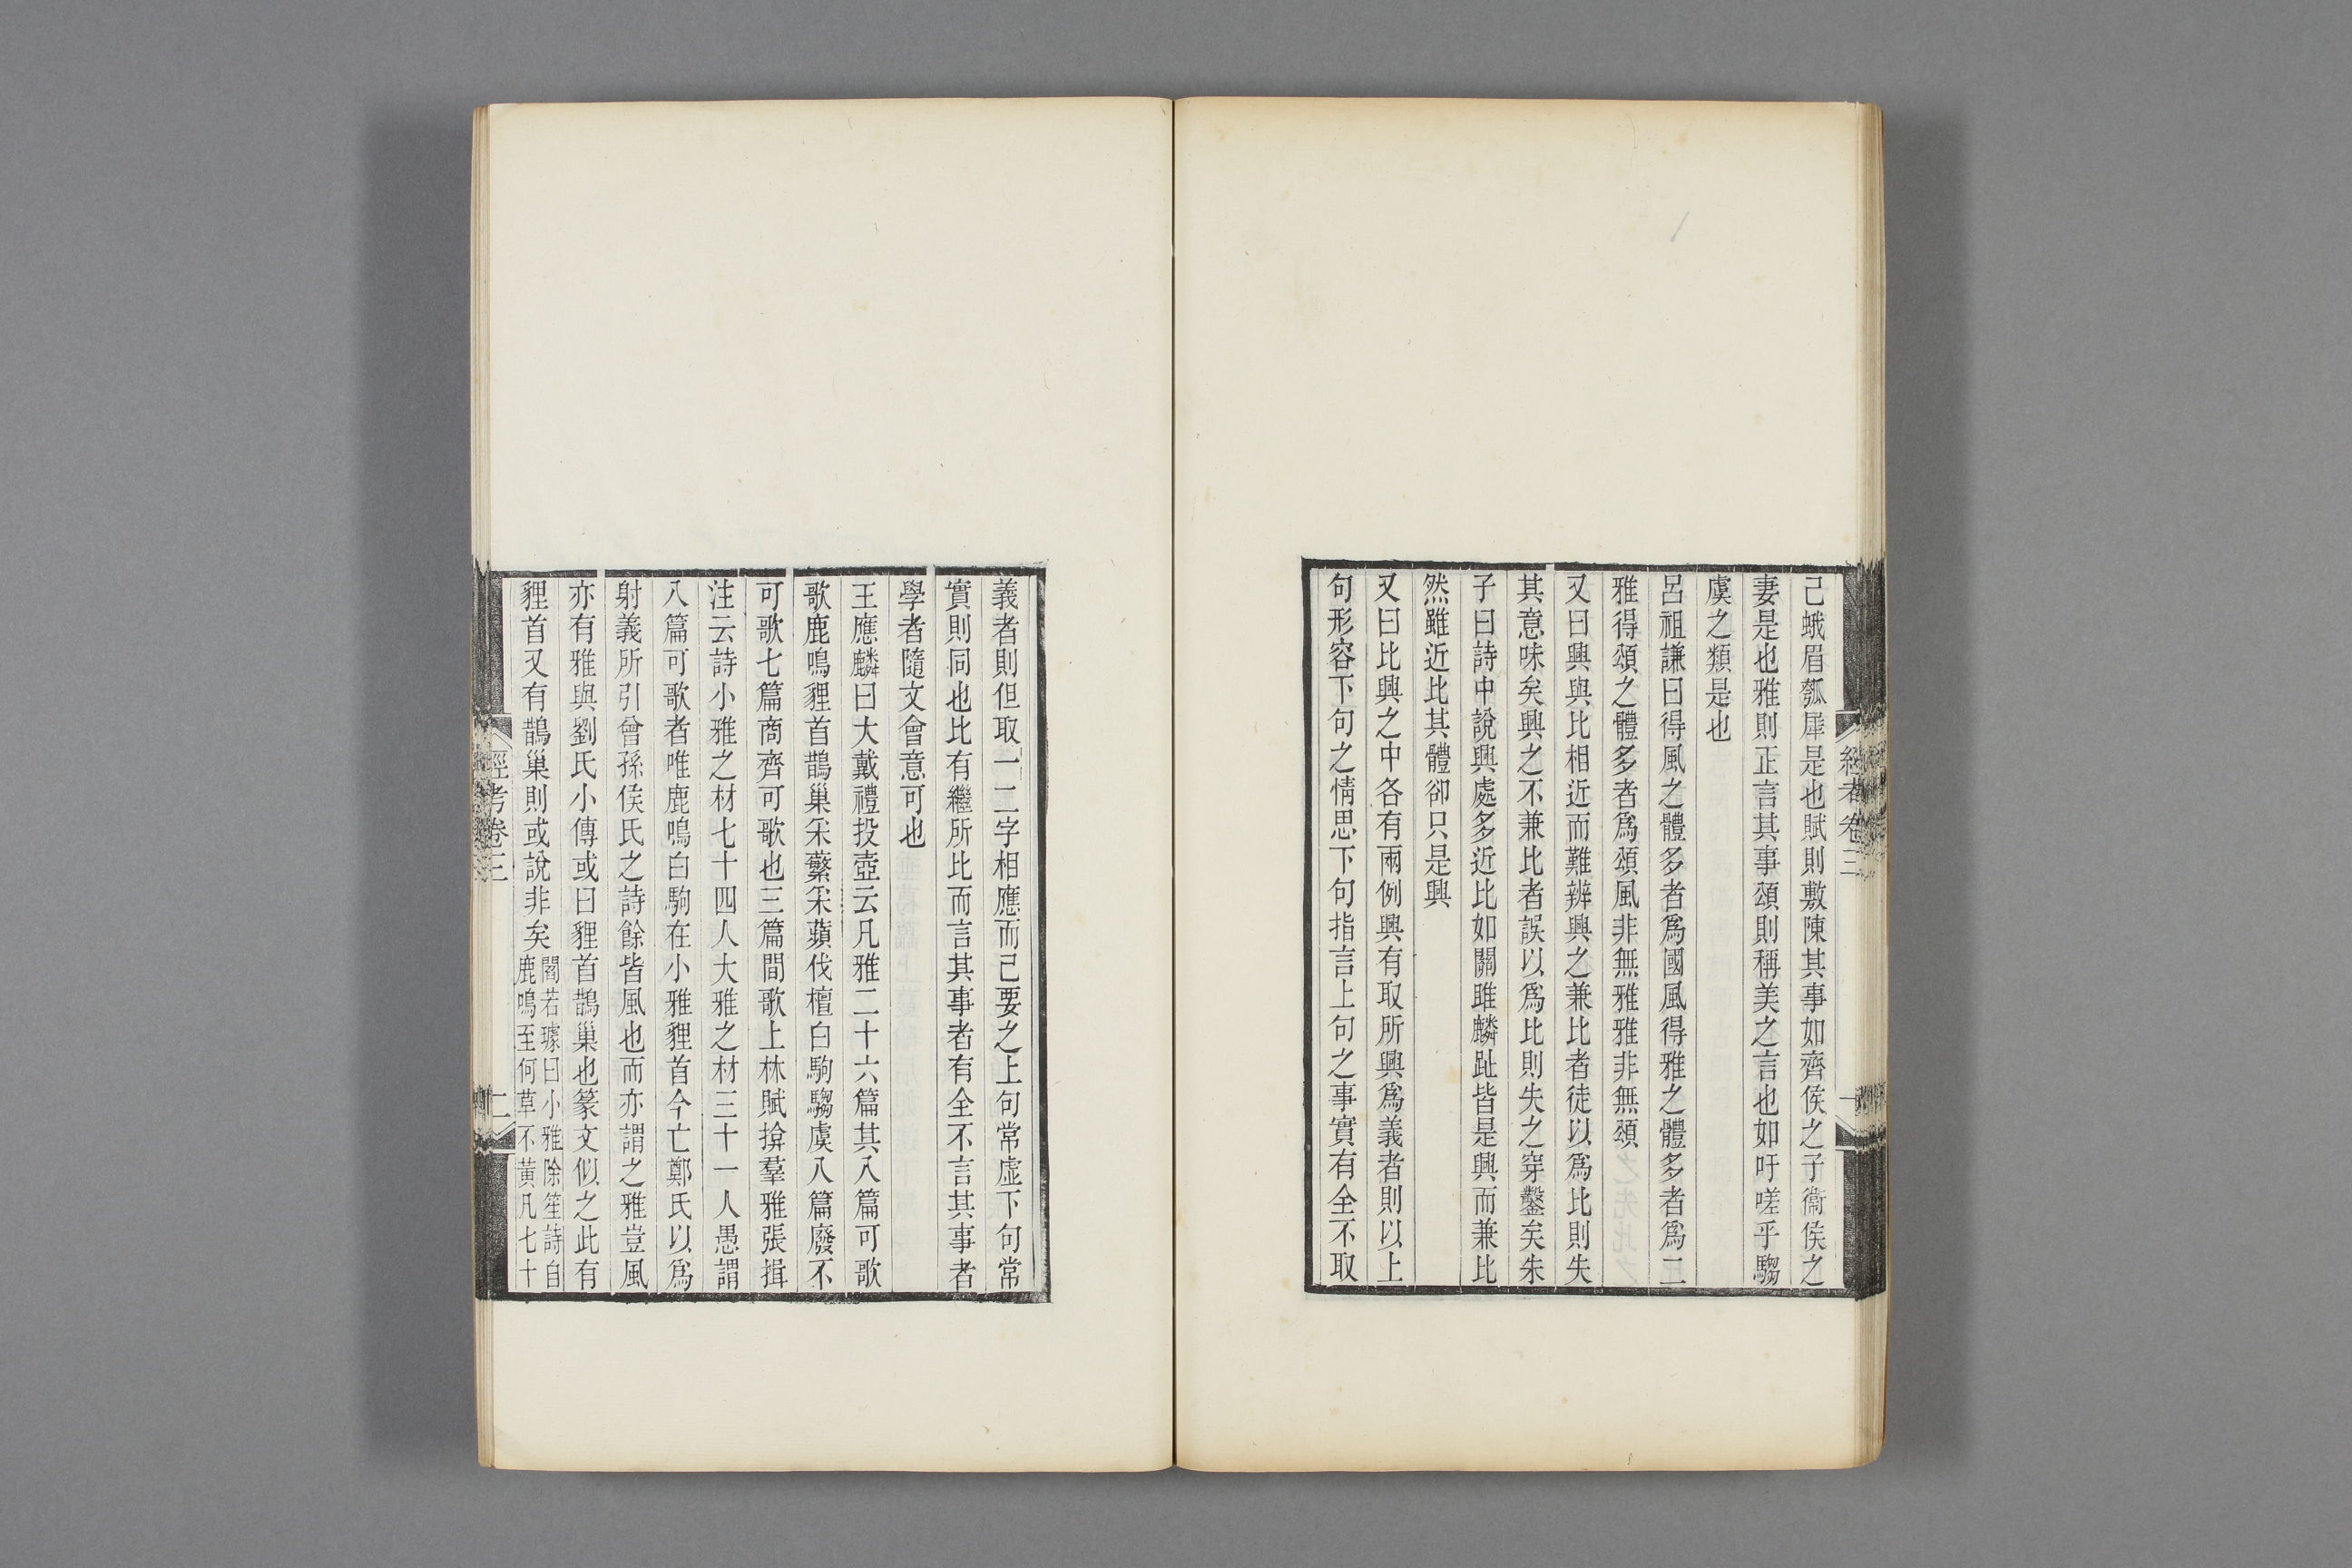 己蛾眉瓠犀是也賦則敷陳其事如齊侯之子衞侯之
妻是也雅則正言其事頌則稱美之言也如吁嗟乎騶
虞之類是也
呂祖謙曰得風之體多者爲國風得雅之體多者爲二
雅得頌之體多者爲頌風非無雅雅非無頌
又曰興與比相近而難辨興之兼比者徒以爲比則失
其意味矣興之不兼比者誤以爲比則失之穿鑿矣朱
子曰詩中說興處多近比如關雎麟趾皆是興而兼比
然雖近比其體卻只是興
又曰比興之中各有兩例興有取所興爲義者則以上
句形容下句之情思下句指言上句之事實有全不取
經考卷三
一
義者則但取一二字相應而己要之上句常虛下句常
實則同也比有繼所比而言其事者有全不言其事者
學者隨文會意可也
王應麟曰大戴禮投壺云凡雅二十六篇其八篇可歌
歌鹿鳴貍首鵲巢采蘩采蘋伐檀白駒騶虞八篇廢不
可歌七篇商齊可歌也三篇間歌上林賦揜羣雅張揖
注云詩小雅之材七十四人大雅之材三十一人愚謂
八篇可歌者唯鹿鳴白駒在小雅貍首今亡鄭氏以爲
射義所引曾孫侯氏之詩餘皆風也而亦謂之雅豈風
亦有雅與劉氏小傳或曰貍首鵲巢也篆文似之此有
貍首又有鵲巢則或說非矣
閻若璩曰小雅除笙詩自
鹿鳴至何草不黃凡七十
經考卷三
二